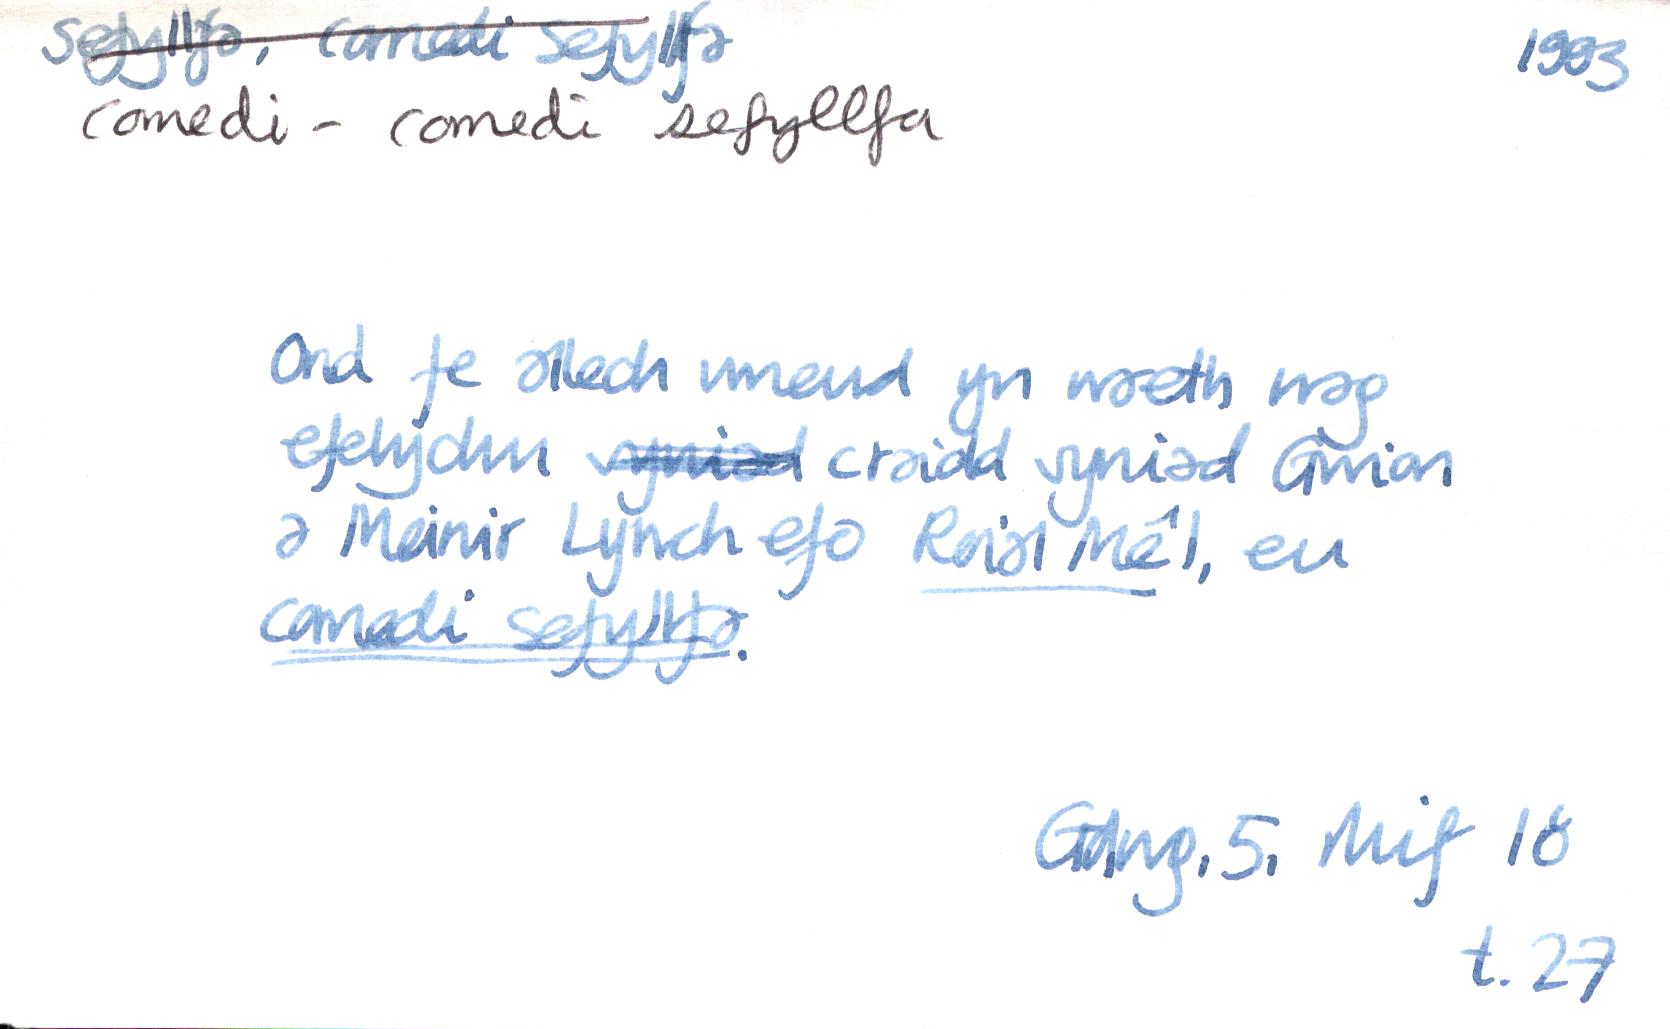 sefyllfa, comedi sefyllfa 1993
comedi - comedi sefyllfa
Ond fe allech wneud yn waeth nag
efelychu syniad craidd syniad Gwion
a Meinir Lynch efo Roial Mêl, eu
comedi sefyllfa.
Golwg. 5. Mif 18
t. 27